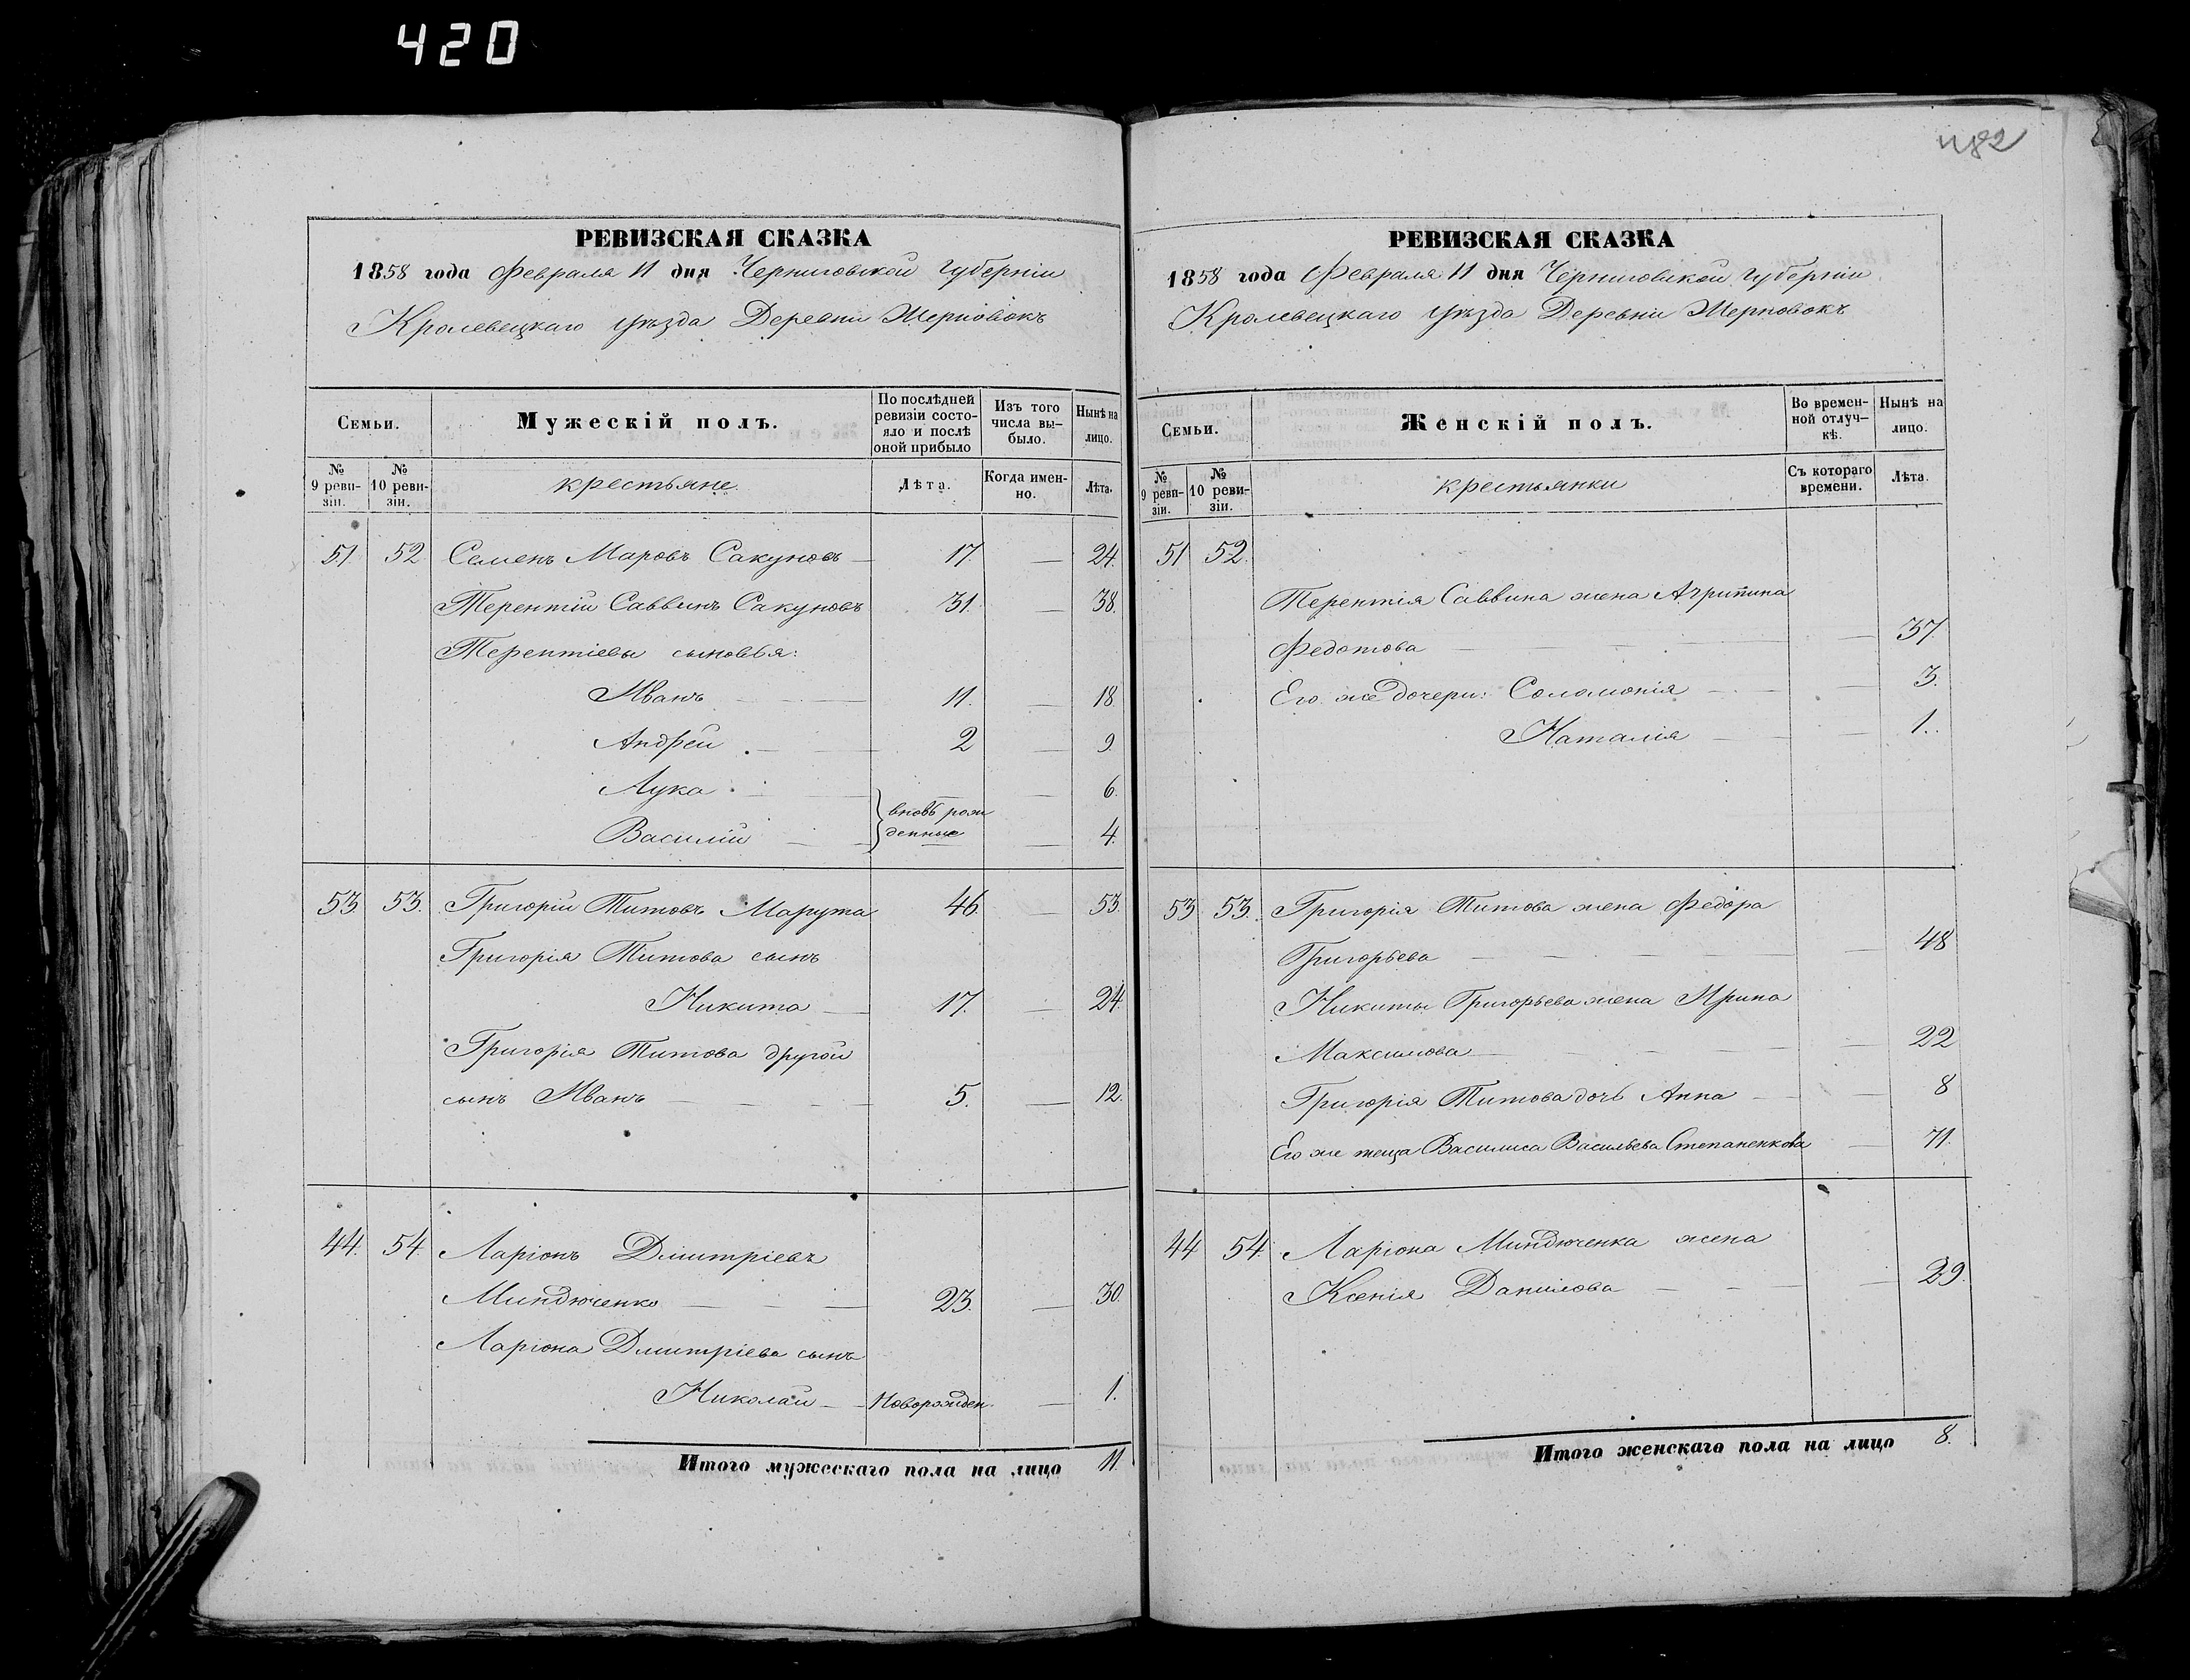 420
482
РЕВИЗСКАЯ СКАЗКА
1858 года Февраля 11 дня Черниговской Губерніи
Кролевецкаго уѣзда Деревни Жерновокъ
Семьи.
Мужескій полъ.
По послѣдней ревизіи состо-
яло и послѣ
оной прибыло
Изъ того
числа вы-
было.
Нынѣ на
лицо.
№ 9 реви-
зіи.
№ 10 реви-
зіи.
крестьяне.
Лѣта.
Когда имен-
но.
Лѣта.
51. 52 Семенъ Маровъ Сакуновъ — 17. — 24.
Терентій Саввинъ Сакуновъ 31. — 38.
Терентіевы сыновья:
Иванъ — 11. — 18.
Андрей — 2 — 9.
Лука — — 6.
вновь рож
денные
Василій — — 4.
53. 53. Григорій Титовъ Марута 46. — 53.
Григорія Титова сынъ
Никита — 17. — 24.
Григорія Титова другой
сынъ Иванъ — 5. — 12.
44. 54. Ларіонъ Дмитріевъ
Миндюченко — 23. — 30.
Ларіона Дмитріева сынъ
Николай — Новорожден. — 1.
Итого мужескаго пола на лицо 11.
РЕВИЗСКАЯ СКАЗКА
1858 года Февраля 11 дня Черниговской Губерніи
Кролевецкаго уѣзда Деревни Жерновокъ
Семьи.
Женскій полъ.
Во времен-
ной отлуч-
кѣ.
Нынѣ на
лицо.
№ 9 реви-
зіи.
№ 10 реви-
зіи.
крестьянки
Съ котораго
времени.
Лѣта.
51 52.
Терентія Саввина жена Агрипина
Федотова — — 37.
Его же дочери: Соломонія — — 3.
Наталія — — 1.
53 53. Григорія Титова жена Федора
Григорьева — — 48
Никиты Григорьева жена Ирина
Максимова — — 22
Григорія Титова дочь Анна — — 8
Его же теща Василиса Васильева Степаненкова — 71.
44 54. Ларіона Миндюченка жена
Ксенія Данилова — — 29.
Итого женскаго пола на лицо 8.